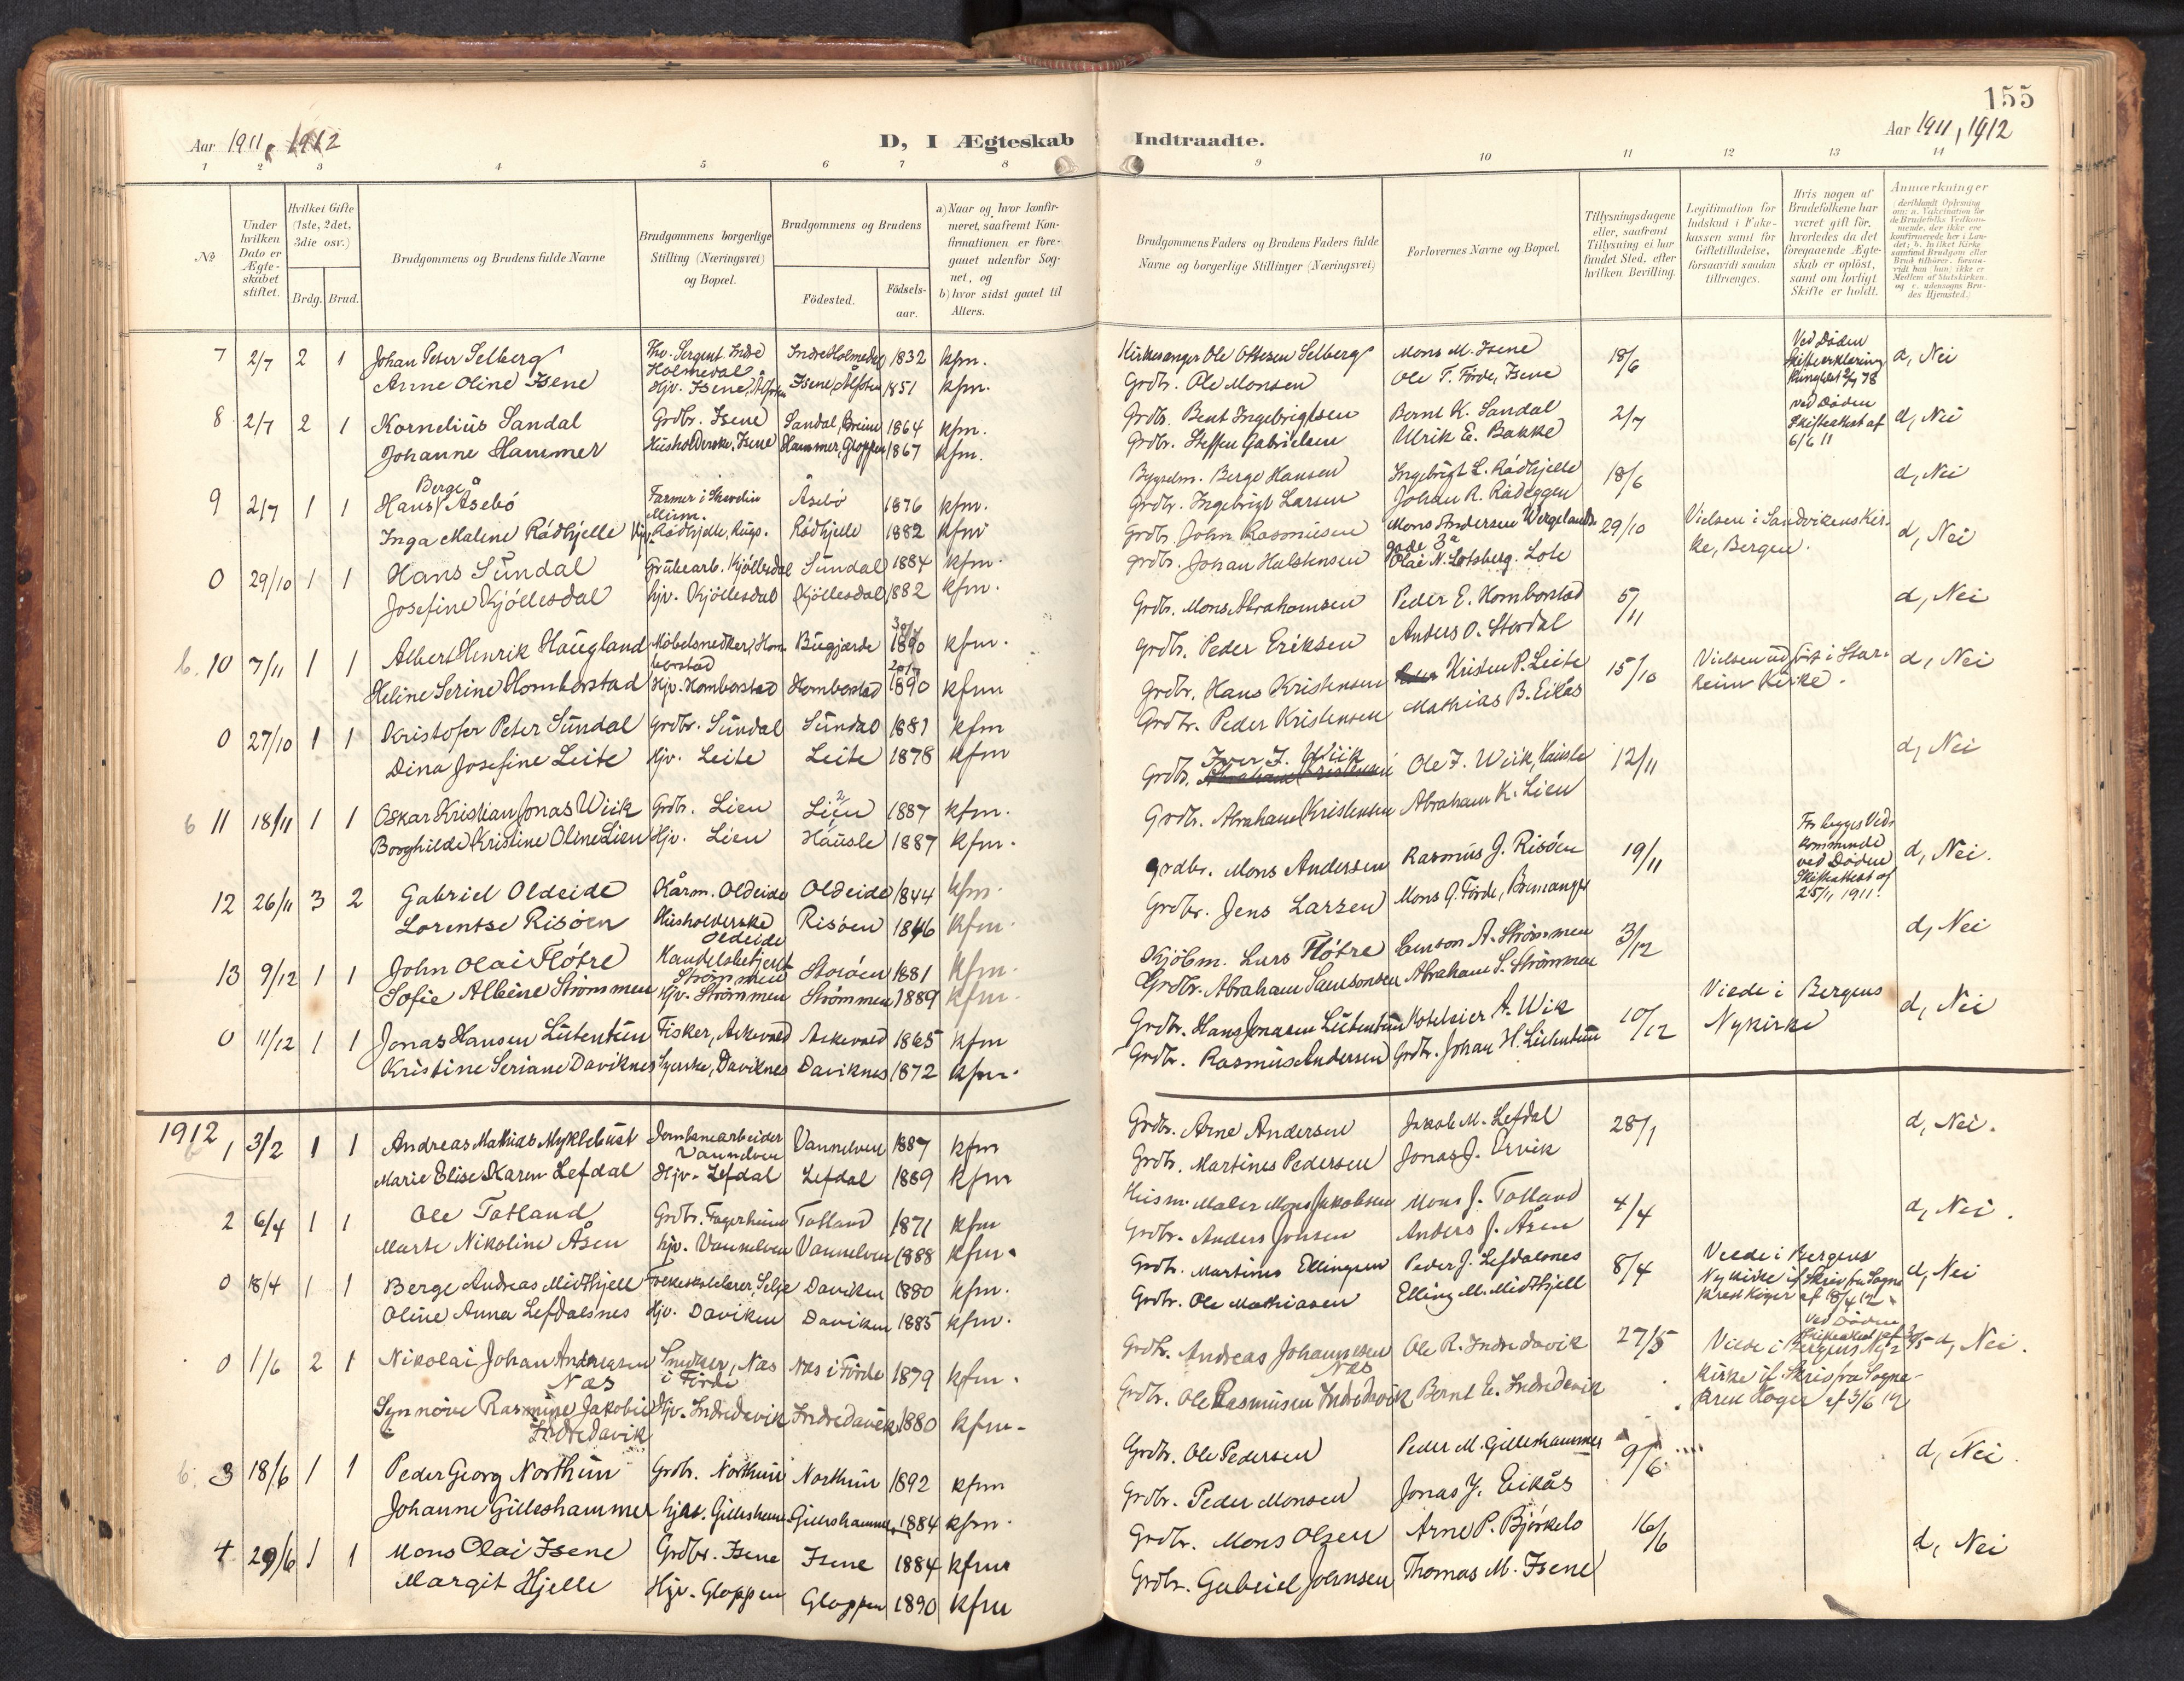 155
Aar 1911, 1912
D, I Ægteskab
Indtraadte.
Aar 1911, 1912
1 2 3 4 5 6 7 8
9 10 11 12 13 14
No
Under hvilken Dato er Ægteskabet stiftet.
Hvilket Gifte (1ste, 2det, 3die osv.)
Brdg. Brud.
Brudgommens og Brudens fulde Navne
Brudgommens borgerlige Stilling (Næringsvei) og Bopæl.
Brudgommens og Brudens
Födested.
Födselsaar.
a) Naar og hvor konfirmeret, saafremt Konfirmationen er foregaaet udenfor Sognet, og
b) hvor sidst gaaet til Alters.
Brudgommens Faders og Brudens Faders fulde Navne og borgerlige Stillinger (Næringsvei)
Forlovernes Navne og Bopæl.
Tillysningsdagene eller, saafremt Tillysning ei har fundet Sted, efter hvilken Bevilling.
Legitimation for Indskud i Enkekassen samt for Giftetilladelse, forsaavidt saadan tiltrænges.
Hvis nogen af Brudefolkene har været gift før, hvorledes da det foregaaende Ægteskab er oplöst, samt om lovligt Skifte er holdt.
Anmærkninger
7 2/7 2 1 Johan Peter Selberg Fhv. Sergent Indre Holmedal Indre Holmedal 1832 kfm. Kirkesanger Ole Ottesen Selberg Mons M. Isene 18/6 Ved Døden Skifteerklæring d, Nei
Anne Oline Isene Hjv. Isene, Ålfoten Isene, Ålfoten 1851 kfm. Grdbr. Ole Monsen Ole T. Förde, Isene
8 2/7 2 1 Kornelius Sandal Grdbr. Isene Sandal, Breim 1864 kfm. Grdbr. Bent Ingebrigtsen Bernt K. Sandal 2/7 ved Døden Skifteattest af 6/6 11 d, Nei
Johanne Hammer Husholderske, Isene Hammer, Gloppen 1867 kfm. Grdbr. Steffen Gabrielsen Ulrik E. Bakke
9 2/7 1 1 Hans Berge Åsebö Farmer i Åsebö 1876 kfm. Berge Hansen Ingebrigt L. Rådhjelle 18/6 d, Nei
Inga Malene Rådhjelle Hjv. Rådhjelle, Rugs. Rådhjelle 1882 kfm Grdbr. Ingebrigt Larsen Johan R. Rådeggen
0 29/10 1 1 Hans Sundal Grubearb. Kjöllesdal Sundal 1884 kfm. Grdbr. John Rasmusen Mons Andersen Wergelands gade 3a 29/10 Vielsen i Sandvikens Kirke, Bergen. d, Nei
Josefine Kjöllesdal hjv. Kjöllesdal Kjöllesdal 1882 kfm. grdbr. Johan Halstensen Olai N. Lotsberg. Lote
b. 10 7/11 1 1 Albert Henrik Haugland Møbelsnedker, Homborstad Bugjærde 30/4 1890 kfm. Grdbr. Mons Abrahamsen Peder E. Homborstad 5/11 d, Nei
Heline Serine Homborstad Hjv. Homborstad Homborstad 1890 kfm Grdbr. Peder Eriksen Anders O. Stordal
0 27/10 1 1 Kristofer Peter Sundal Grdbr. Sundal Sundal 1881 kfm Grdbr. Hans Kristensen Kristen P. Leite 15/10 Vielsen udført i Starheim Kirke. d, Nei
Dina Josefine Leite Hjv. Leite Leite 1878 kfm Grdbr. Peder Kristensen Mathias B. Eikås
b 11 18/11 1 1 Oskar Kristian Jonas Wiik Grdbr. Lien Lien 1887 kfm. Grdbr. Iver J. Wiik Ole J. Wiik, Hausle 12/11 d, Nei
Borghilde Kristine Oline Lien Hjv. Lien Hausle 1887 kfm. Grdbr. Abraham Kristensen Abraham K. Lien
12 26/11 3 2 Gabriel Oldeide Kårm. Oldeide Oldeide 1844 kfm. grdbr. Mons Andersen Rasmus J. Risøen 19/11 For begges Vedkommende ved Døden Skifteattest af 25/11 1911. d, Nei.
Lorentse Risøen Husholderske Oldeide Risøen 1846 kfm. Grdbr. Jens Larsen Mons G. Förde, Bremanger
13 9/12 1 1 John Olai Fløtre Handelsbetjent Strömmen 1881 kfm. Kjöbm. Lars Fløtre Samson A. Strömmen 3/12 d, Nei
Sofie Albine Strömmen Hjv. Strömmen Strömmen 1889 kfm. Grdbr. Abraham Samsonsen Abraham S. Strömmen
0 11/12 1 1 Jonas Hansen Lütentün Fisker, Askevold Askevold 1865 kfm Grdbr. Hans Jonasen Lütentün Hoteleier A. Wik 10/12 Viede i Bergens Nykirke d, Nei
Kristine Seriane Daviknes Syerske, Daviknes Daviknes 1872 kfm. Grdbr. Rasmus Andersen Grdbr. Johan H. Lütentün
1912
1 3/2 1 1 Andreas Mathias Myklebust Jernbanearbeider Vannelven Vannelven 1887 kfm Grdbr. Arne Andersen Jakob M. Lefdal 28/1 d, Nei.
Marie Elise Karen Lefdal Hjv. Lefdal Lefdal 1889 kfm Grdbr. Martines Pedersen Jonas J. Ervik
2 6/4 1 1 Ole Totland Grdbr. Fagerheim Totland 1871 kfm Husm. Maler Mons Jakobsen Mons J. Totland 4/4 d, Nei.
Marte Nikoline Åsen hjv. Vannelven Vannelven 1888 kfm. Grdbr. Anders Jonsen Anders J. Åsen
0 18/4 1 1 Berge Andreas Midthjell Folkeskolelærer, Selje Daviken 1880 kfm. Grdbr. Martinus Ellingsen Peder J. Lefdalsnes 8/4 Viede i Bergens Nykirke if Skriv fra Sogneprest Koger af 18/4 12. d, Nei
Oline Anna Lefdalsnes Hjv. Daviken Daviken 1885 kfm. Grdbr. Ole Mathiasen Elling M. Midthjell
0 1/6 2 1 Nikolai Johan Andreasen Næs Snedker, Næs i Förde Næs i Förde 1879 kfm. Grdbr. Andreas Johannesen Næs Ole R. Indredavik 27/5 Viede i Bergens Nykirke if Skriv fra Sogneprest Koger af 3/6 12 Ved Døden Skifteattest af d, Nei.
Synnöve Rasmine Jakobie Indredavik Hjv. Indredavik Indredavik 1880 kfm. Grdbr. Ole Rasmusen Indredavik Bernt E. Indredavik
b. 3 18/6 1 1 Peder Georg Northun Grdbr. Northun Northun 1892 kfm Grdbr. Ole Pedersen Peder M. Gilleshammer 9/6 d, Nei.
Johanne Gilleshammer hjv. Gilleshammer Gilleshammer 1884 kfm. Grdbr. Peder Monsen Jonas J. Eikås
4 29/6 1 1 Mons Olai Isene Grdbr. Isene Isene 1884 kfm Grdbr. Mons Olsen Arne P. Björkelo 16/6 d, Nei
Margit Hjelle Hjv. Gloppen Gloppen 1890 kfm Grdbr. Gabriel Johnsen Thomas M. Isene